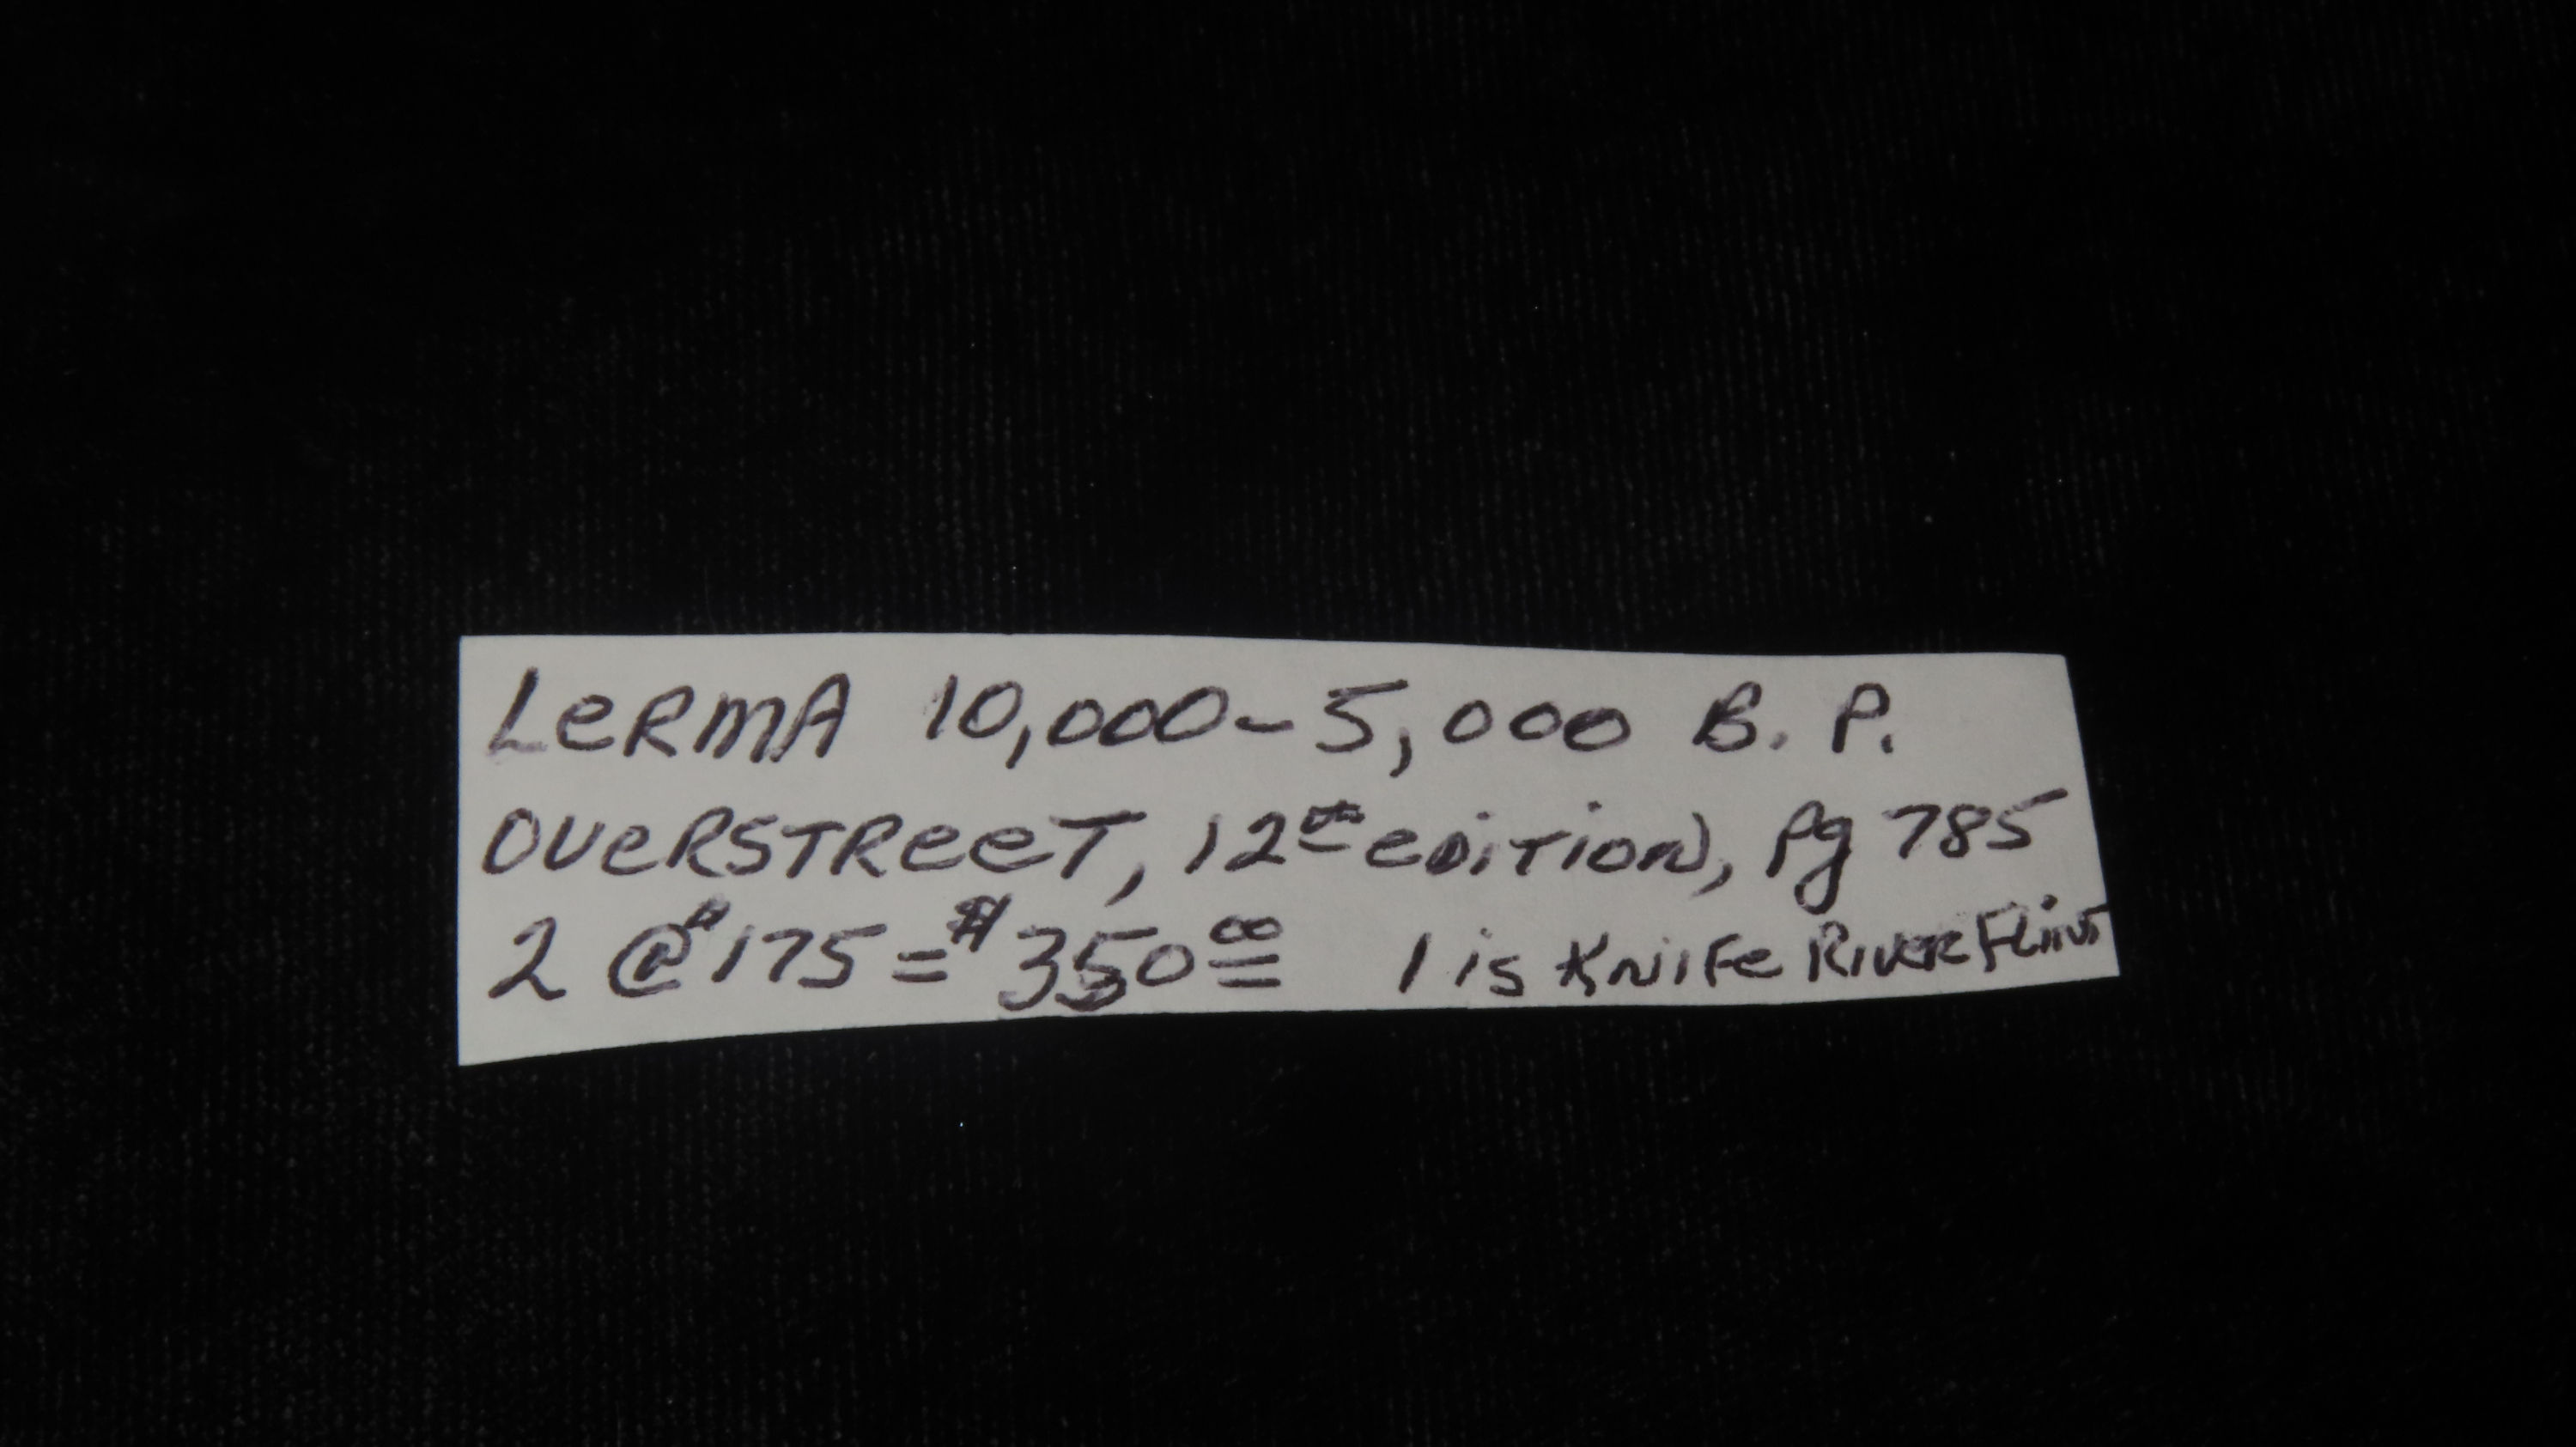 LeRmA 10,000-5,000 B. P.
OVeRSTReeT, 12th eDiTioN, Pg 785
2 @ $175 = $350 00 1 is KNiFe RiveR FLiNT